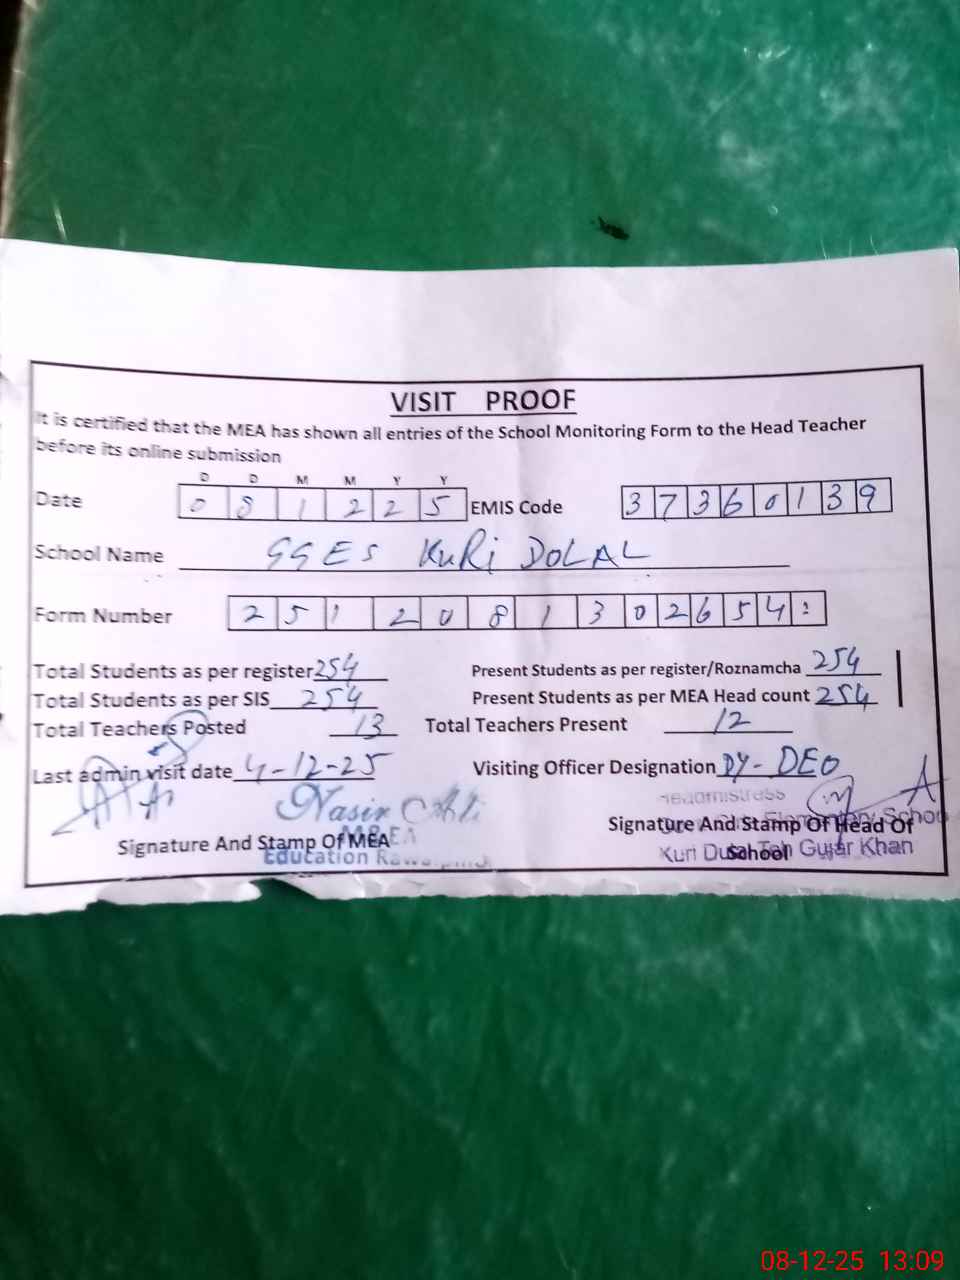 VISIT PROOF
It is certified that the MEA has shown all entries of the School Monitoring Form to the Head Teacher
before its online submission
D D M M Y Y
Date 0 8 1 2 2 5 EMIS Code 3 7 3 6 0 1 3 9
School Name GGES KURI DOLAL
Form Number 2 5 1 2 0 8 1 3 0 2 6 5 4
Total Students as per register 254 Present Students as per register/Roznamcha 254
Total Students as per SIS 254 Present Students as per MEA Head count 254
Total Teachers Posted 13 Total Teachers Present 12
Last admin visit date 4-12-25 Visiting Officer Designation DY-DEO
Nasir Ali
Headmistress
Signature And Stamp Of MEA
Signature And Stamp Of Head Of
School
MEA
Elementary School
Education
Kuri Teh Gujar Khan
08-12-25 13:09